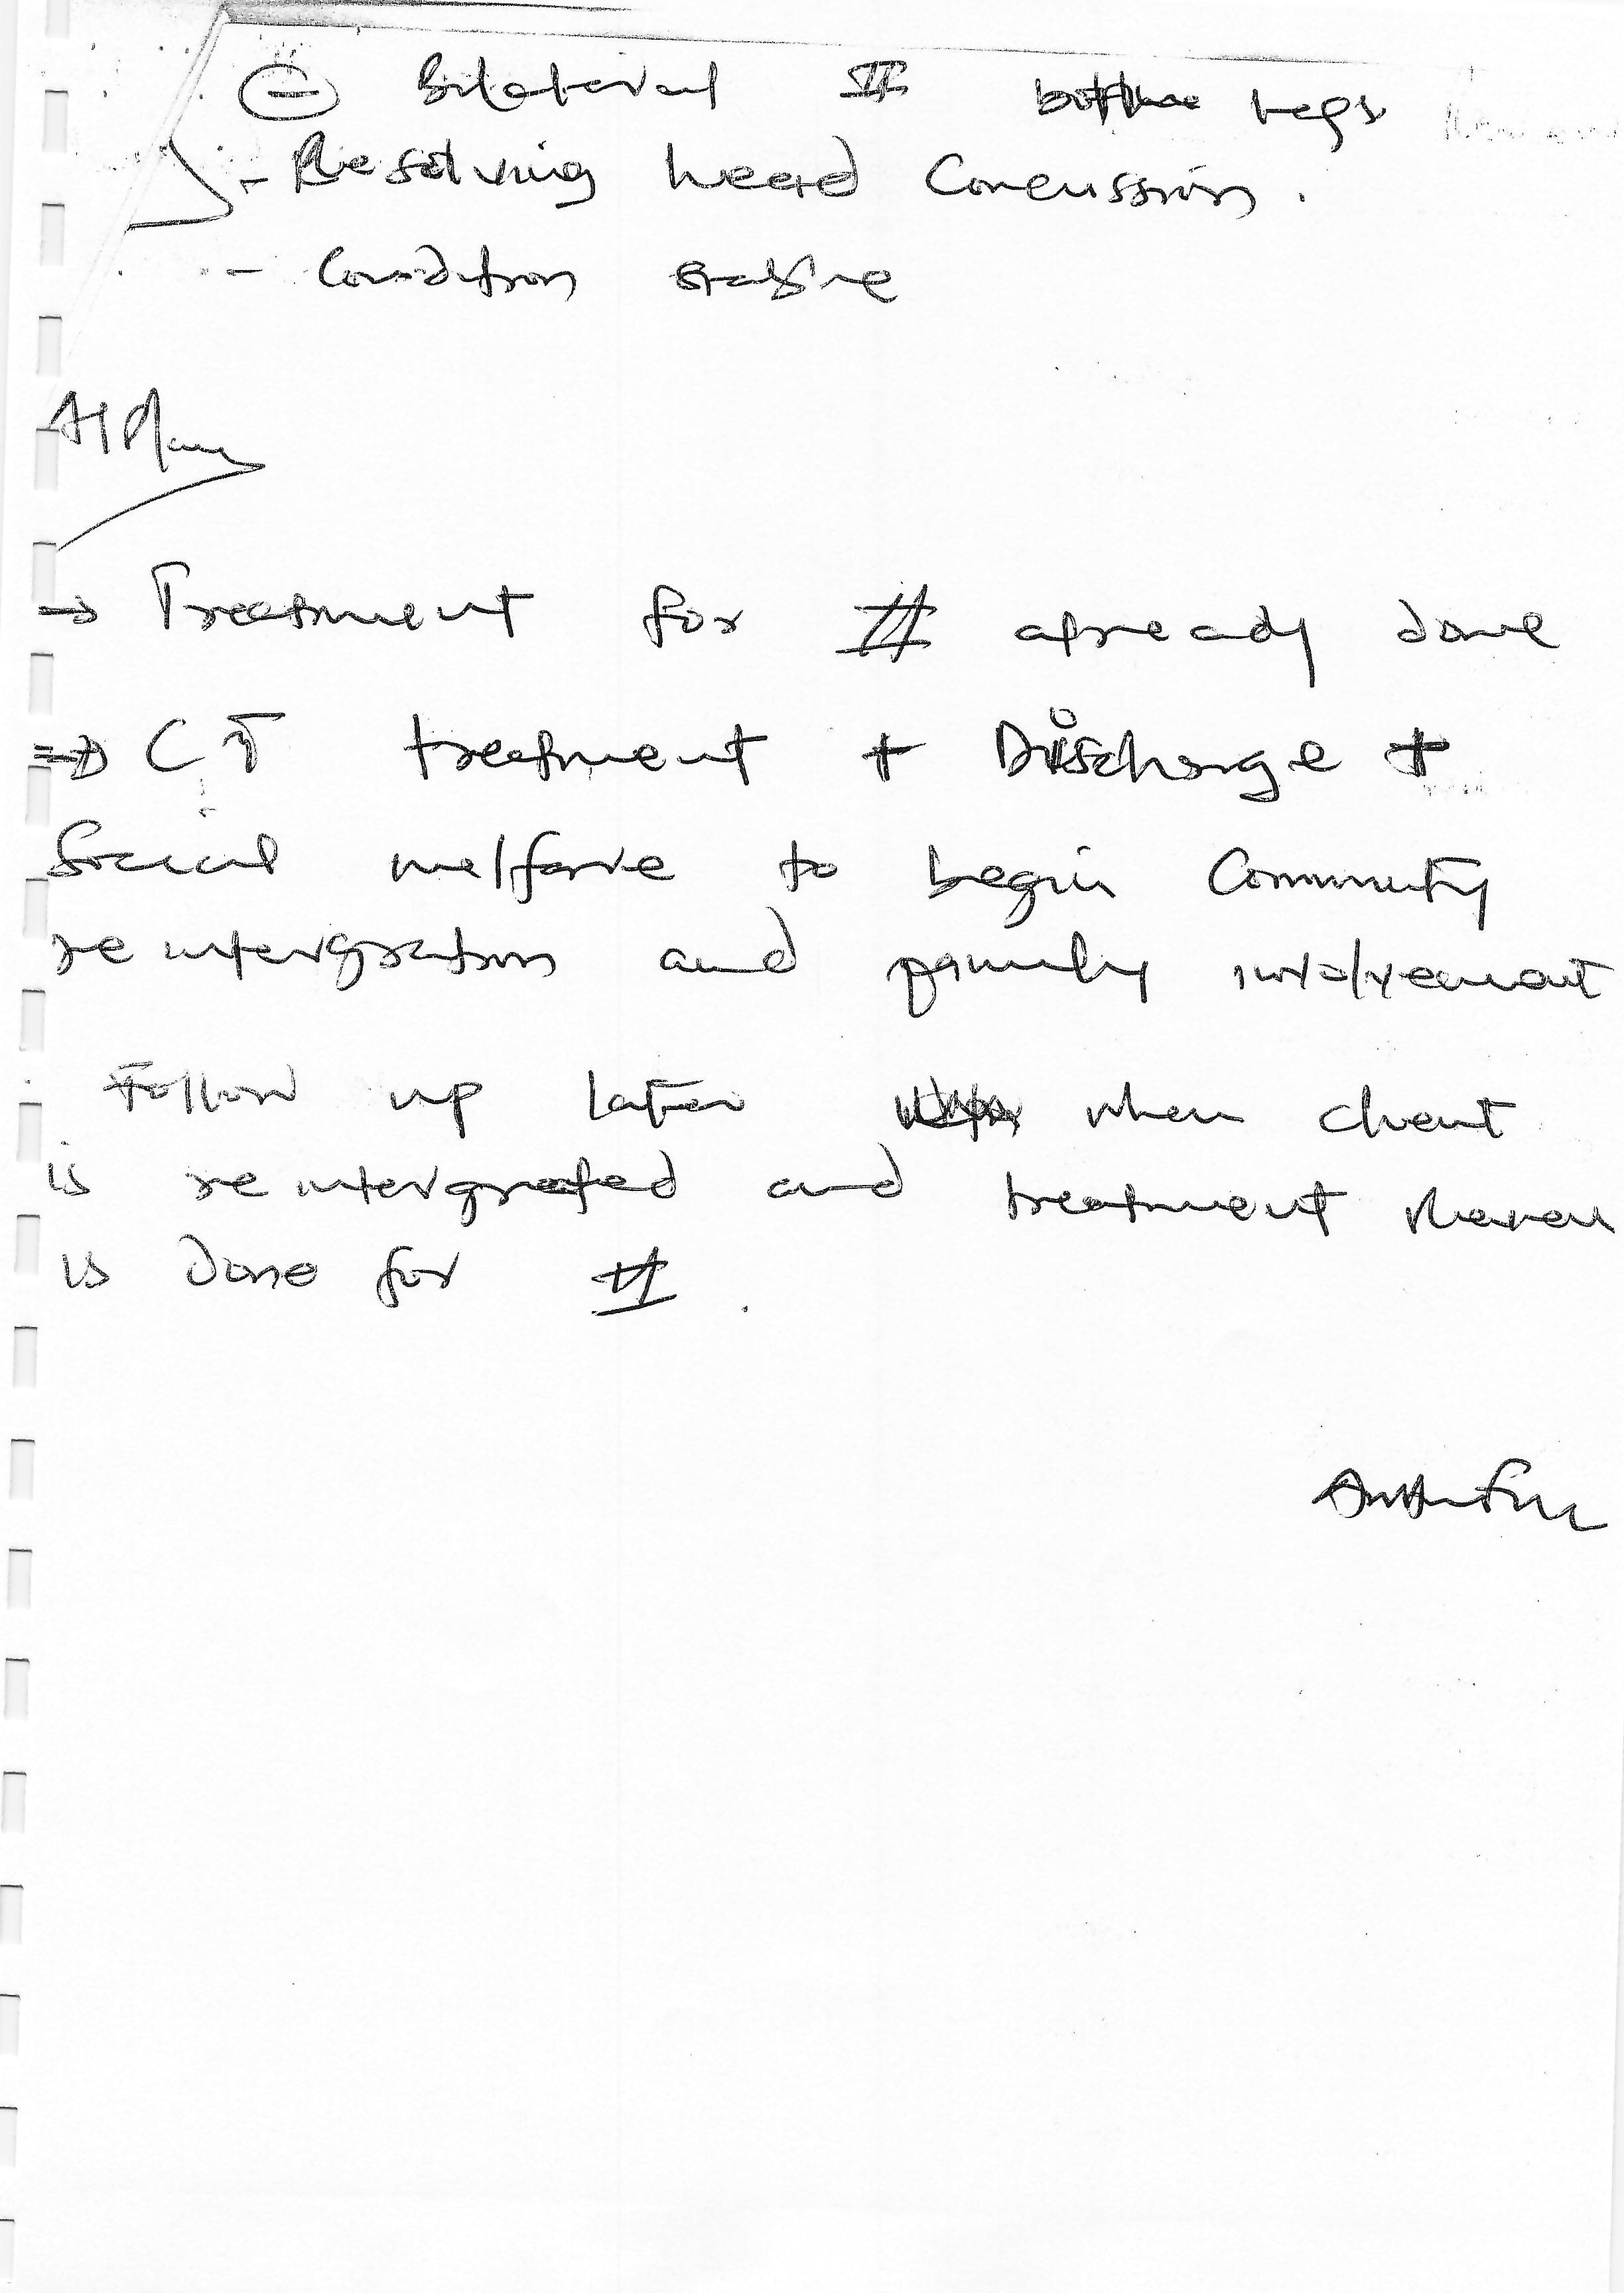 - Bilateral # Legs
- Resolving head Concussion.
- Condition stable
A/Plan
→ Treatment for # already done
⇒ CT treatment + Discharge +
Social welfare to begin Community
reintergration and family involvement
Follow up later when client
is reintergrated and treatment
is done for #.